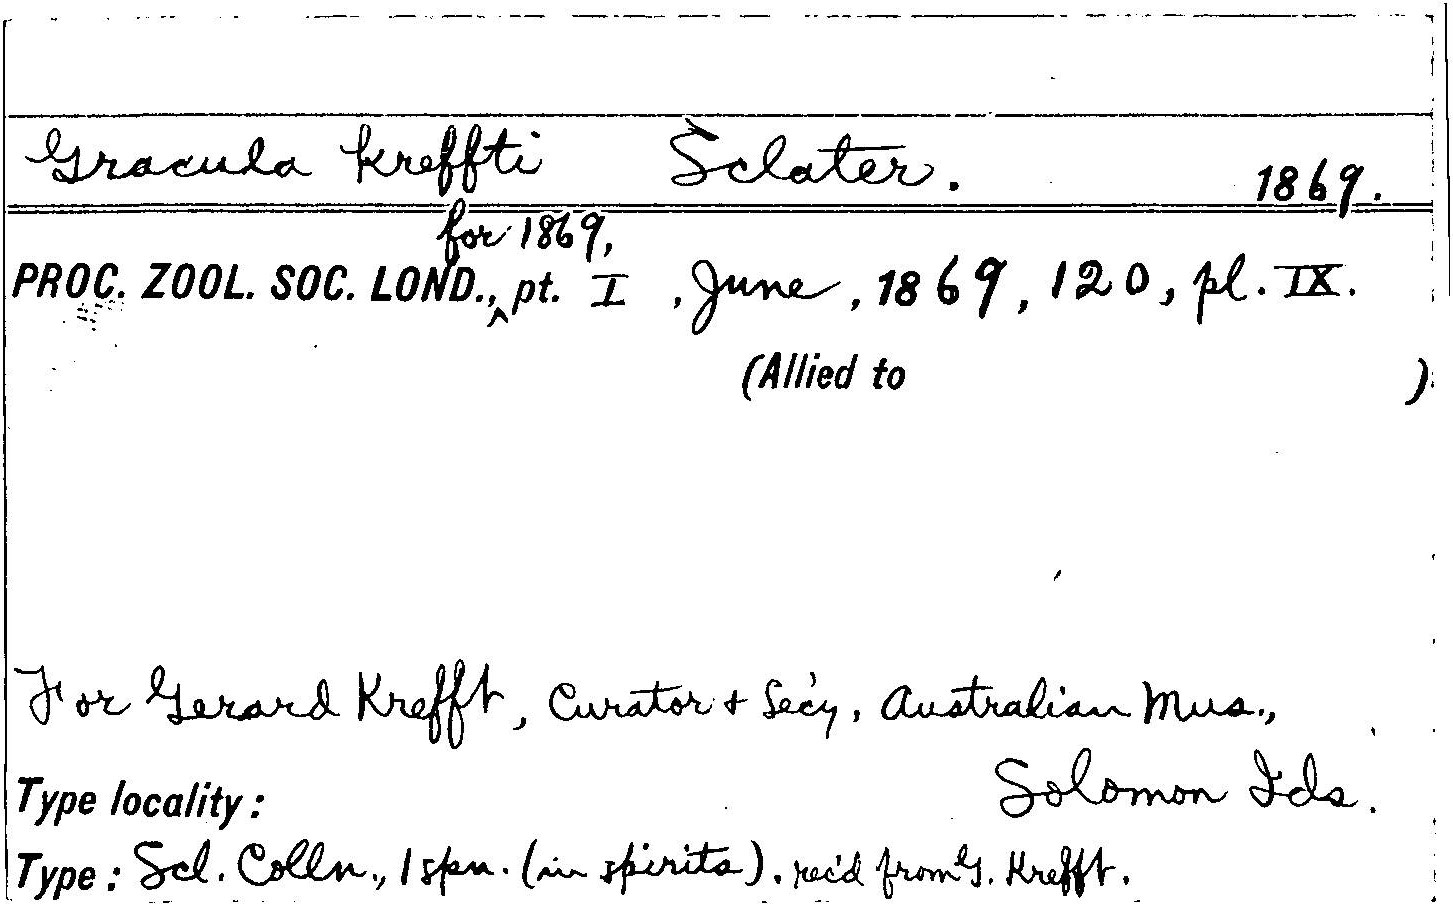 Gracula kreffti Sclater. 1869.
for 1869,
PROC. ZOOL. SOC. LOND., pt. I, June, 1869, 120, pl. IX.
(Allied to )
For Gerard Krefft, Curator + Sec'y, Australian Mus.,
Type locality: Solomon Ids.
Type: Scl. Colln., 1 spn. (in spirits). rec'd from G. Krefft.